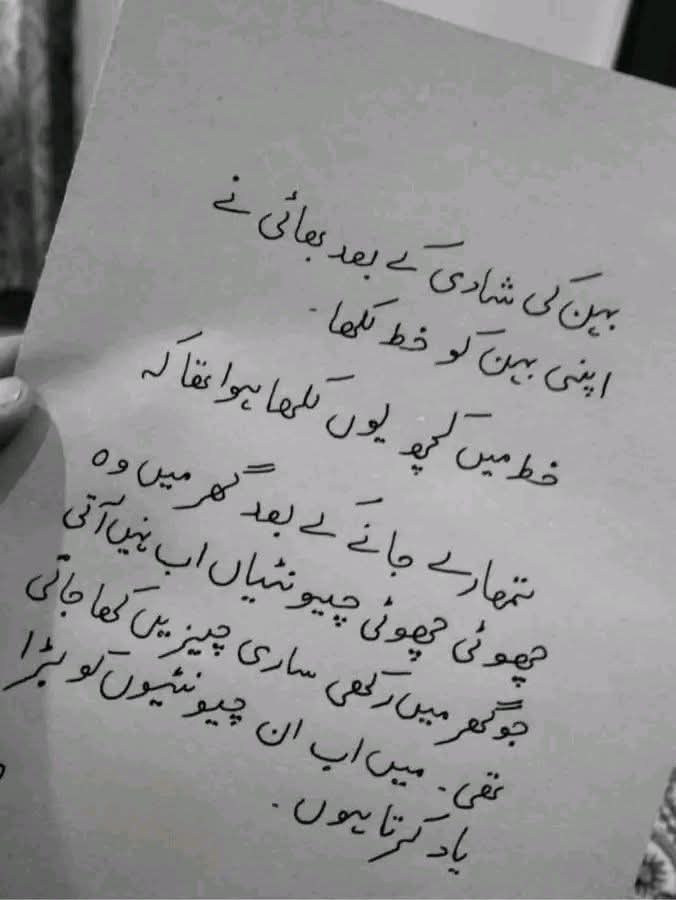 بہن کی شادی کے بعد بھائی نے
اپنی بہن کو خط لکھا۔
خط میں کچھ یوں لکھا ہوا تھا کہ
تمھارے جانے کے بعد گھر میں وہ
چھوٹی چھوٹی چیونٹیاں اب نہیں آتی
جو گھر میں رکھی ساری چیزیں کھا جاتی
تھی۔ میں اب ان چیونٹیوں کو بڑا
یاد کرتا ہوں۔